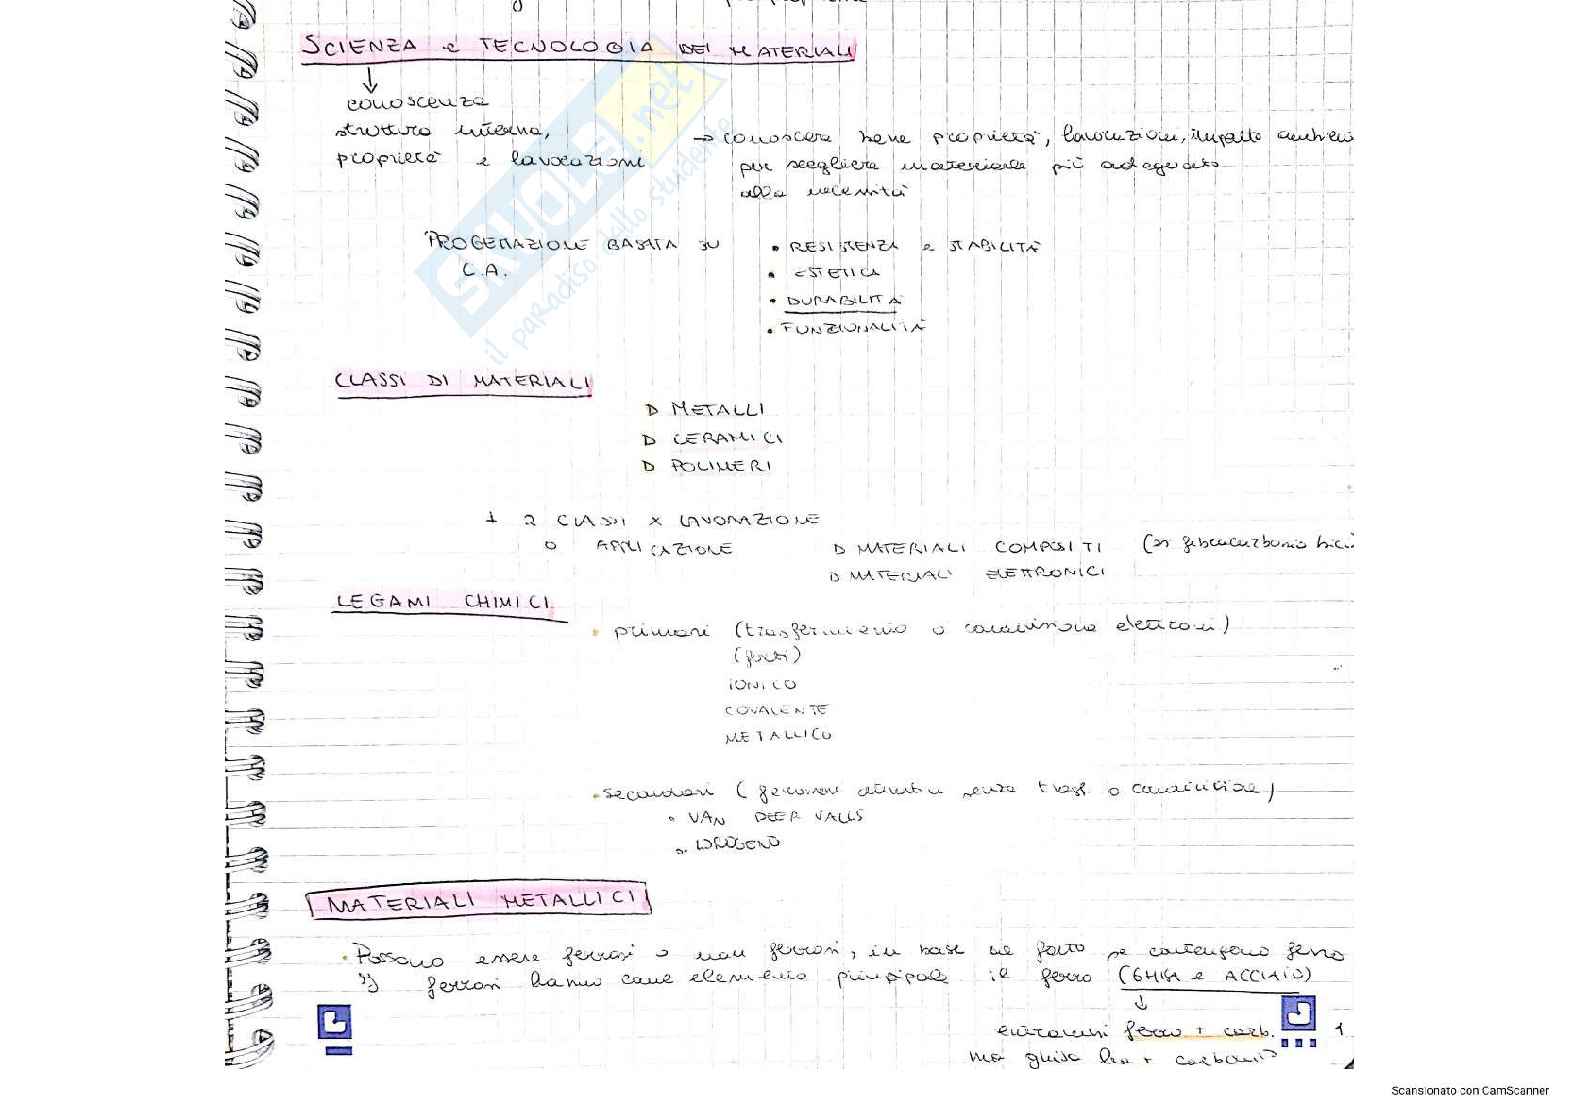 SCIENZA e TECNOLOGIA DEI MATERIALI
conoscenza
struttura interna,
proprietà e lavorazioni
→ conoscere bene proprietà, lavorazioni, impatto
per scegliere materiale più adeguato
alla necessità
PROGETTAZIONE BASATA SU
C.A.
• RESISTENZA e STABILITÀ
• ESTETICA
• DURABILITÀ
• FUNZIONALITÀ
SKUOLA.net
il paradiso dello studente
CLASSI DI MATERIALI
METALLI
CERAMICI
POLIMERI
+ 2 CLASSI x LAVORAZIONE
O APPLICAZIONE
MATERIALI COMPOSITI
MATERIALI ELETTRONICI
LEGAMI CHIMICI
• primari (trasferimento o condivisione elettroni)
(forti)
IONICO
COVALENTE
METALLICO
• secondari ( senza trasf. o condivisione)
• VAN DEER VALLS
• IDROGENO
MATERIALI METALLICI
• Possono essere ferrosi o non ferrosi, in base al fatto se contengono ferro
1) ferrosi hanno come elemento principale il ferro (GHISA e ACCIAIO)
entrambi ferro + carb.
ma ghisa ha + carbonio
1
Scansionato con CamScanner